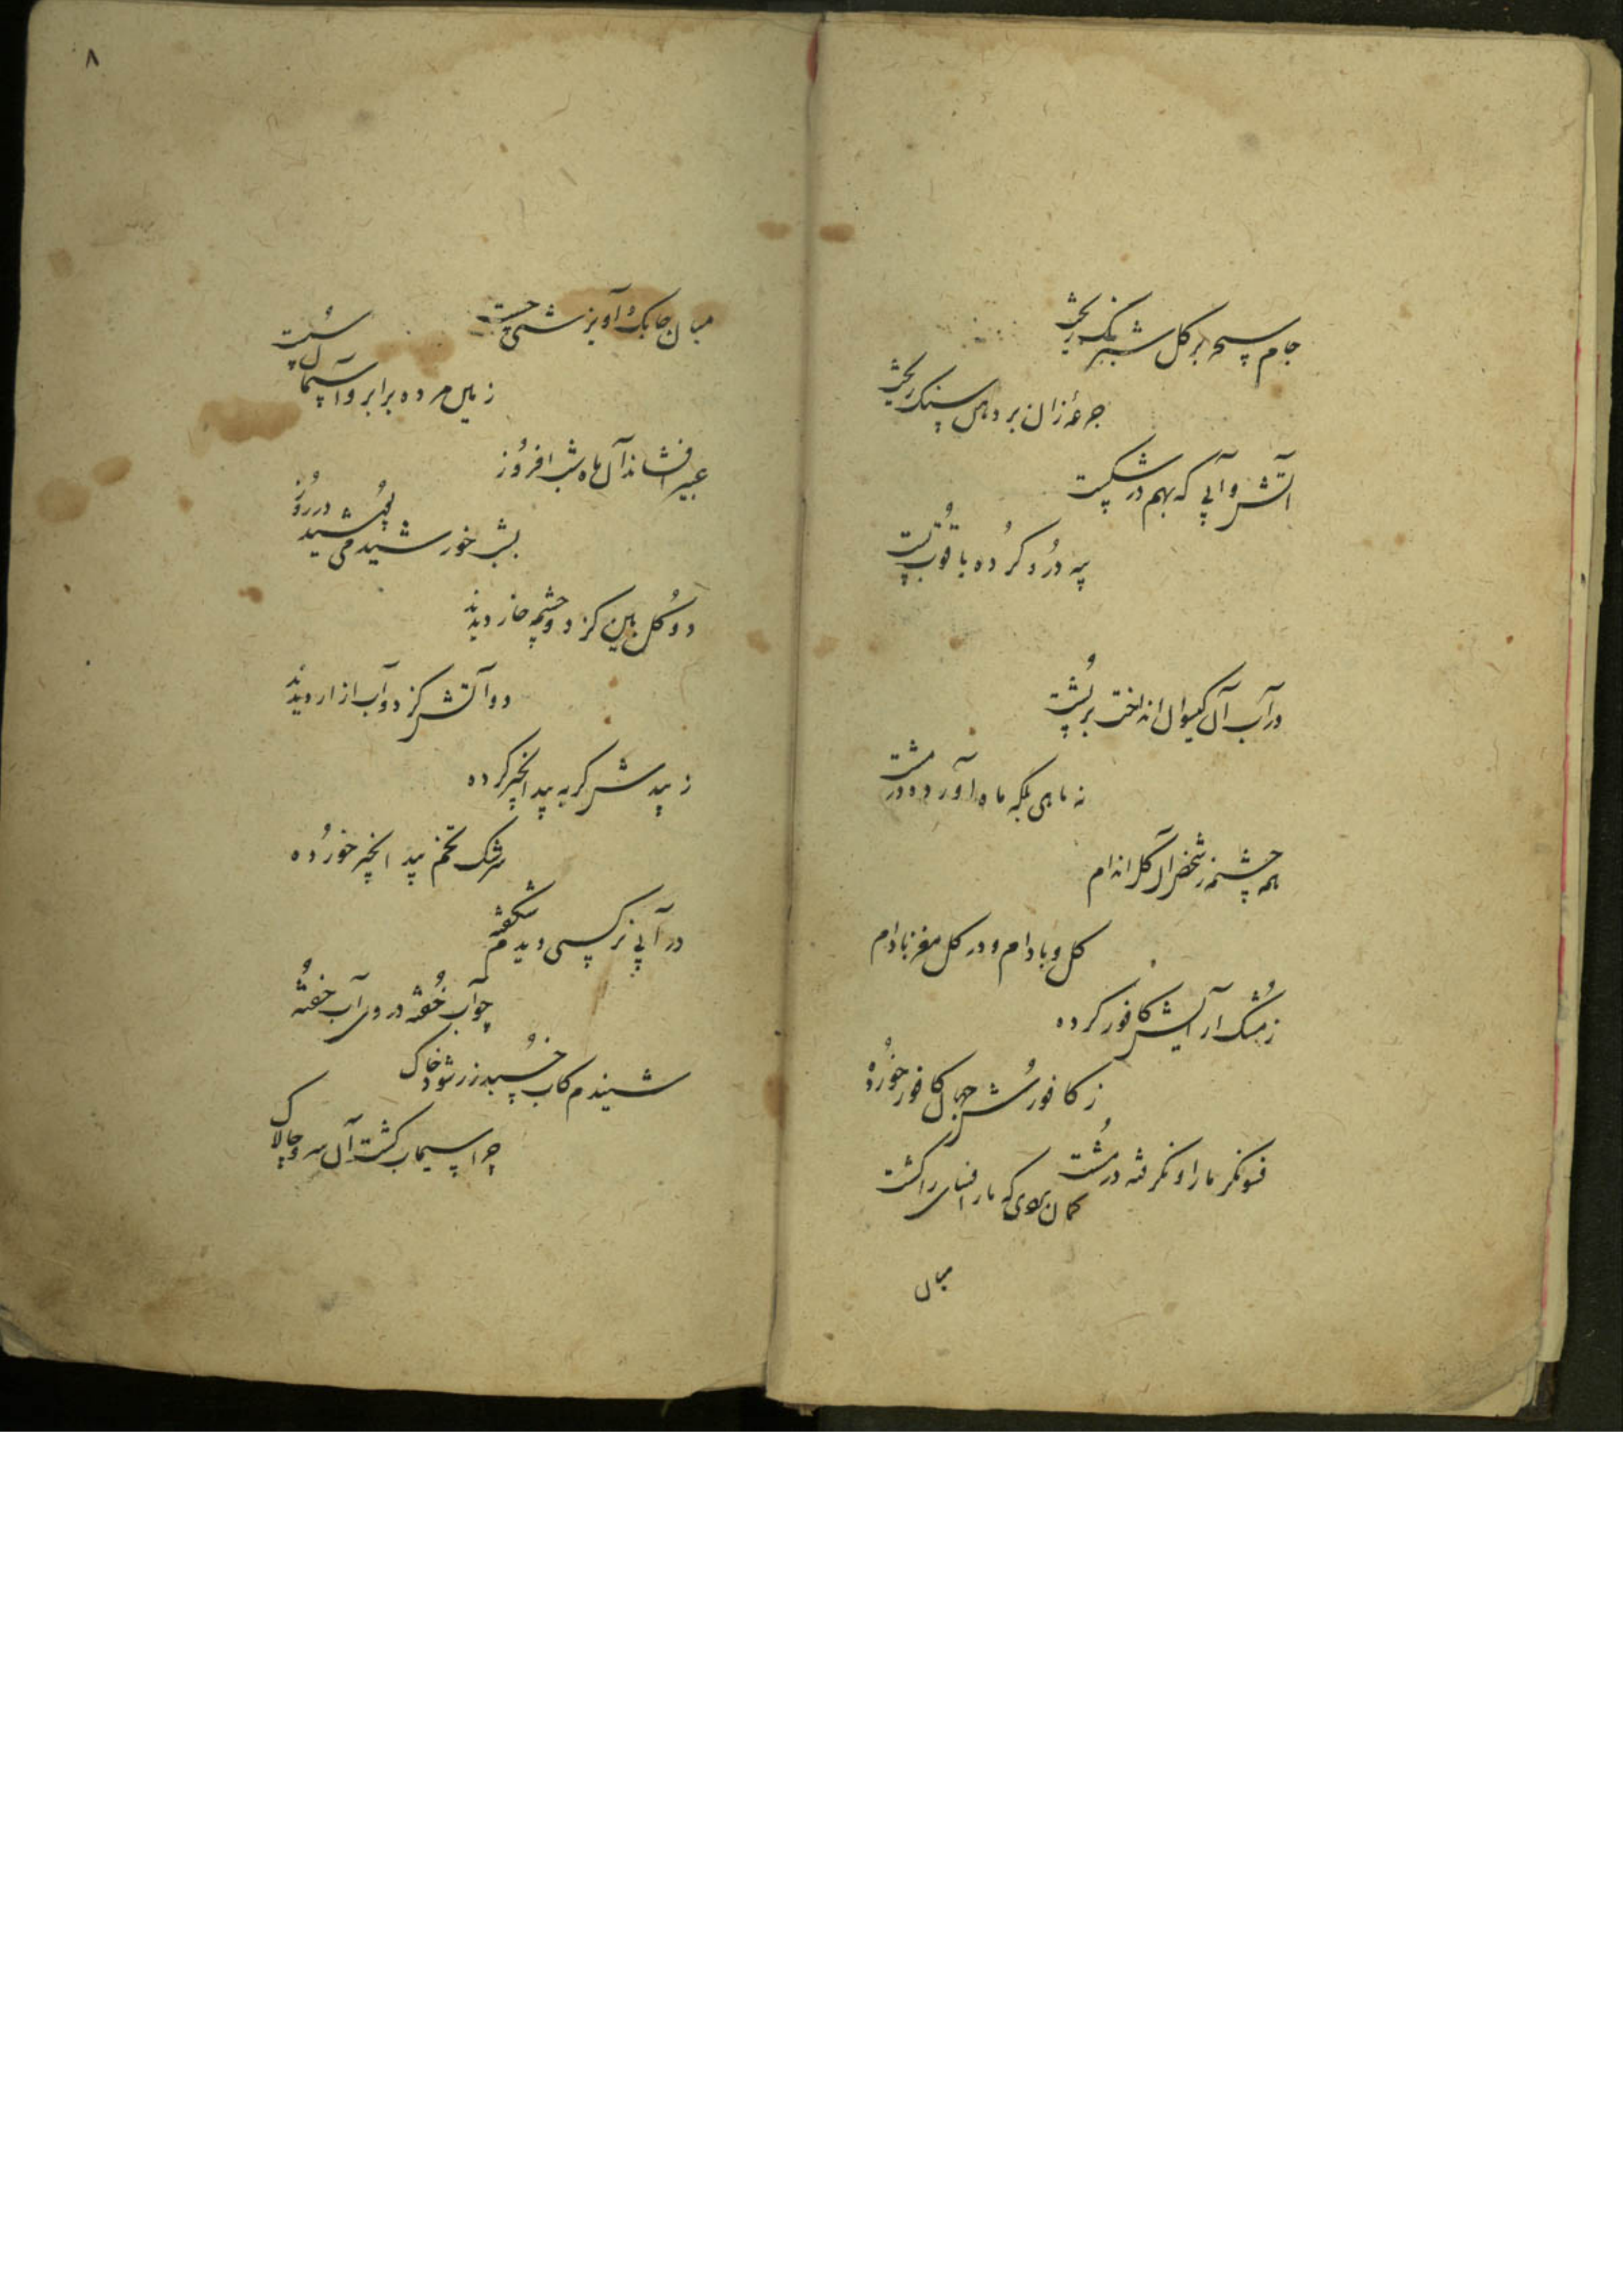 جام سحر بر گل شبرنگ ریخت
جرعه زان بر دهن سنگ ریخت
آتش و آبی که بهم در شکست
پیه در و گرده یاقوت بست
در آب آن گیسوان انداخت بر پشت
نه ماهی بلکه ماه آورده در مشت
همه چشمه ز شخص آن گل اندام
گل و بادام و در گل مغز بادام
ز مشک آرایش کافور کرده
ز کافورش جهان کافور خورده
فسونگر مار را نگرفته در مشت
گمان بردی که مار افسای را کشت
میان
۸
میان چابک و آویزشی چست
زمین مرده برابر و آسمان سست
عبیر افشاند آن ماه شب افروز
بشب خورشید می پوشید در روز
دو گل بین کز دو چشمه خار دیدند
دو آتش کز دو آب آزار دیدند
ز بیدش گربه بید انجیر کرده
سرشک تخم بید انجیر خورده
در آبی نرگسی دیدم شکفته
چو آب خفته در وی آب خفته
شنیدم کاب خسبد زر شود خاک
چرا سیماب گشت آن سرو چالاک